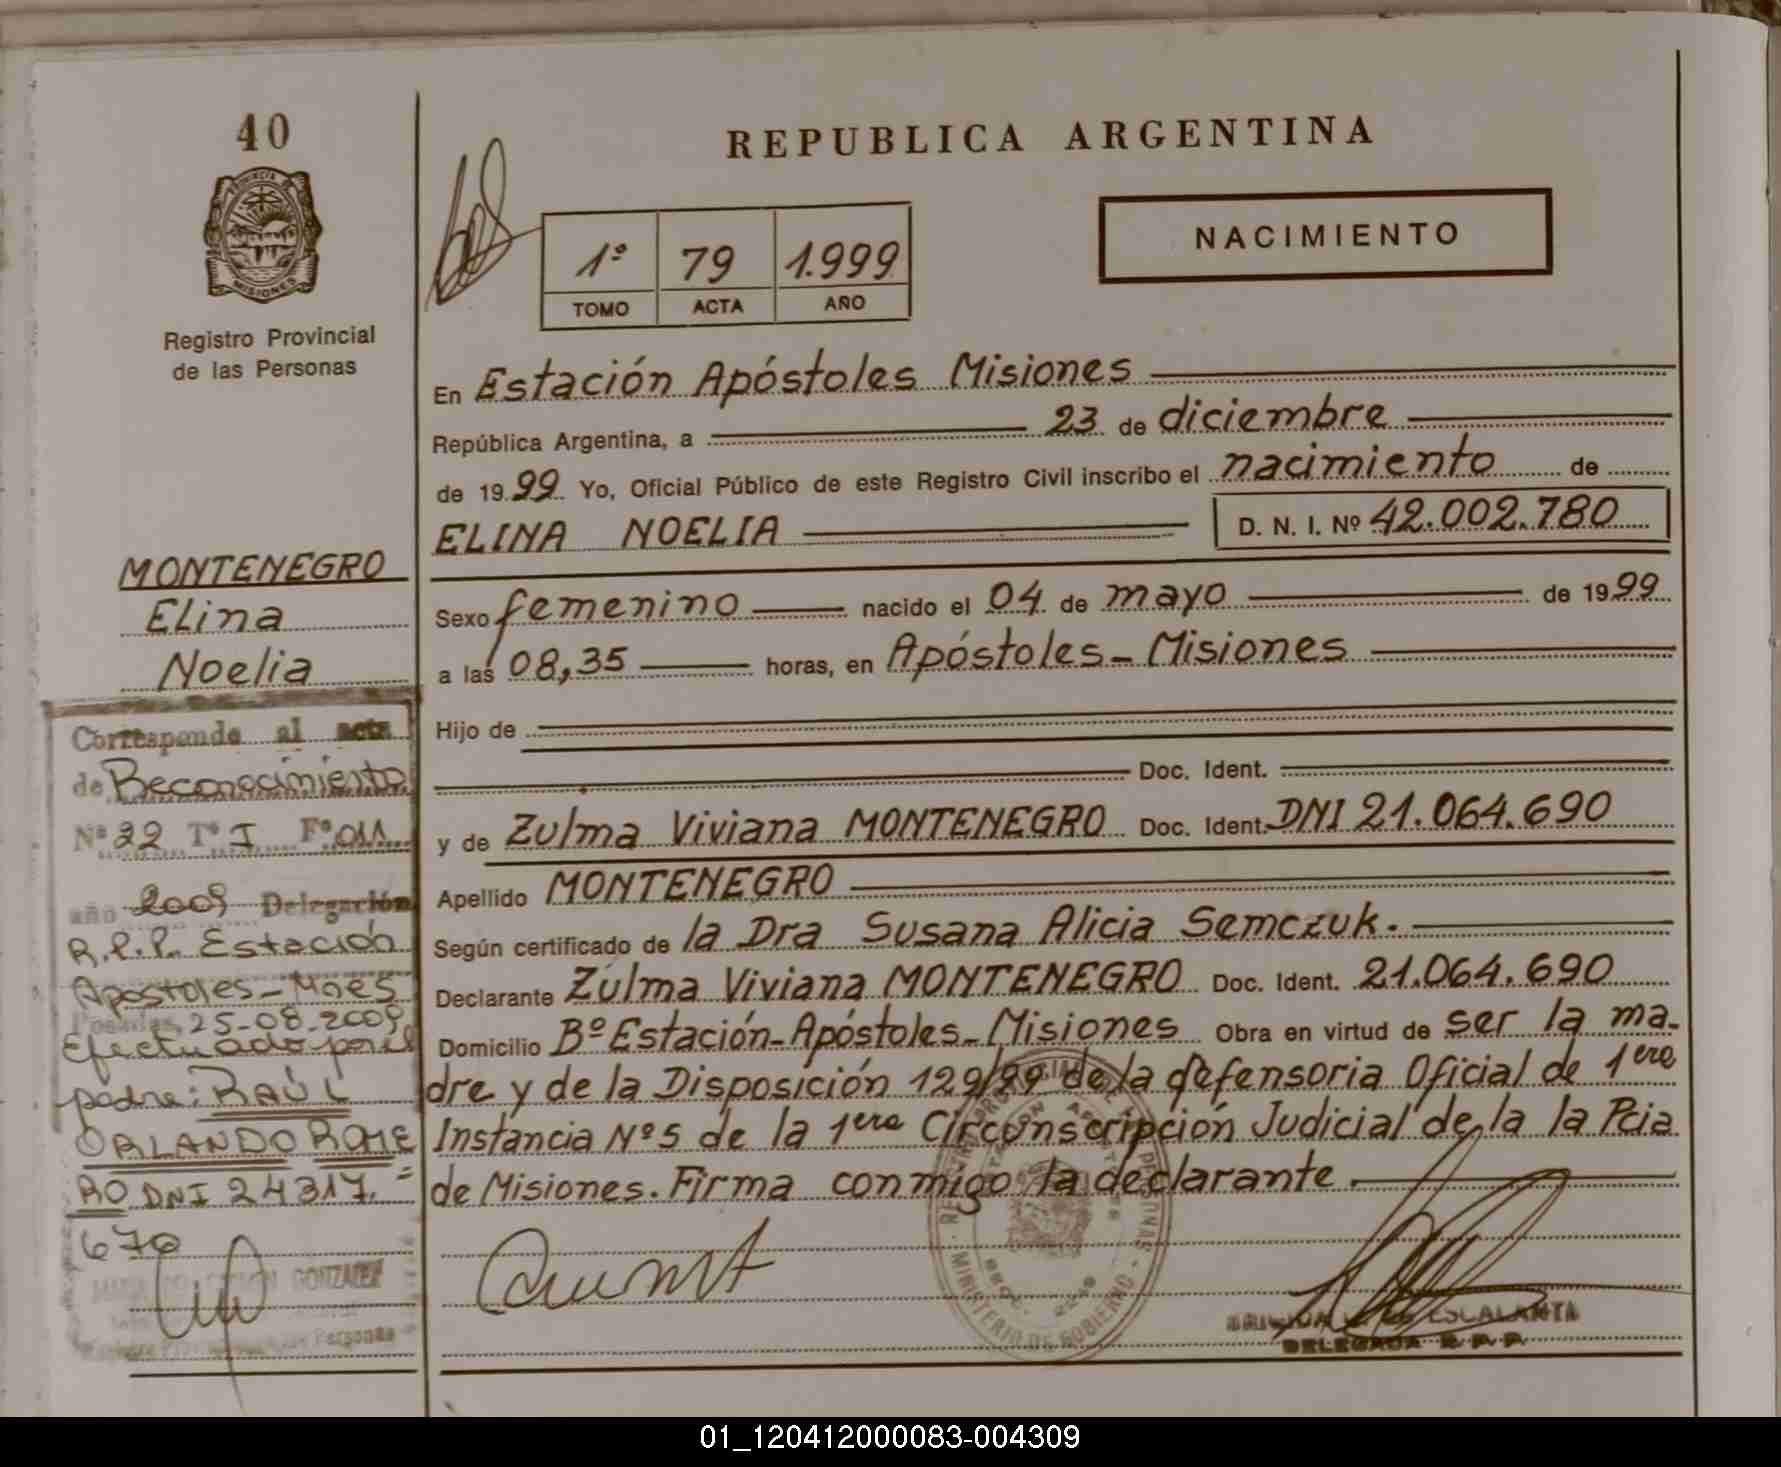 40
PROVINCIA DE
MISIONES
Registro Provincial
de las Personas
MONTENEGRO
Elina
Noelia
Corresponde al acta
de Reconocimiento
Nº 32 Tº I Fº 011
año 2009 Delegación
R.P.P. Estación
Apostoles - Mnes
Posadas, 25-08-2009
Efectuado por el
padre: RAÚL
ORLANDO ROME
RO DNI 24317.=
670
GONZALEZ
Personas
REPUBLICA ARGENTINA
NACIMIENTO
1º 79 1.999
TOMO ACTA AÑO
En Estación Apóstoles Misiones
República Argentina, a 23 de diciembre
de 1999 Yo, Oficial Público de este Registro Civil inscribo el nacimiento de
ELINA NOELIA D. N. I. Nº 42.002.780
Sexo femenino nacido el 04 de mayo de 1999
a las 08,35 horas, en Apóstoles - Misiones
Hijo de
Doc. Ident.
y de Zulma Viviana MONTENEGRO Doc. Ident. DNI 21.064.690
Apellido MONTENEGRO
Según certificado de la Dra Susana Alicia Semczuk.
Declarante Zulma Viviana MONTENEGRO Doc. Ident. 21.064.690
Domicilio Bº Estación - Apóstoles - Misiones Obra en virtud de ser la ma-
dre y de la Disposición 129/99 de la defensoria Oficial de 1era
Instancia Nº 5 de la 1era Circonscripción Judicial de la la Pcia
de Misiones. Firma conmigo la declarante.
MINISTERIO DE GOBIERNO
ESCALANTA
DELEGADA R.P.P.
01_120412000083-004309